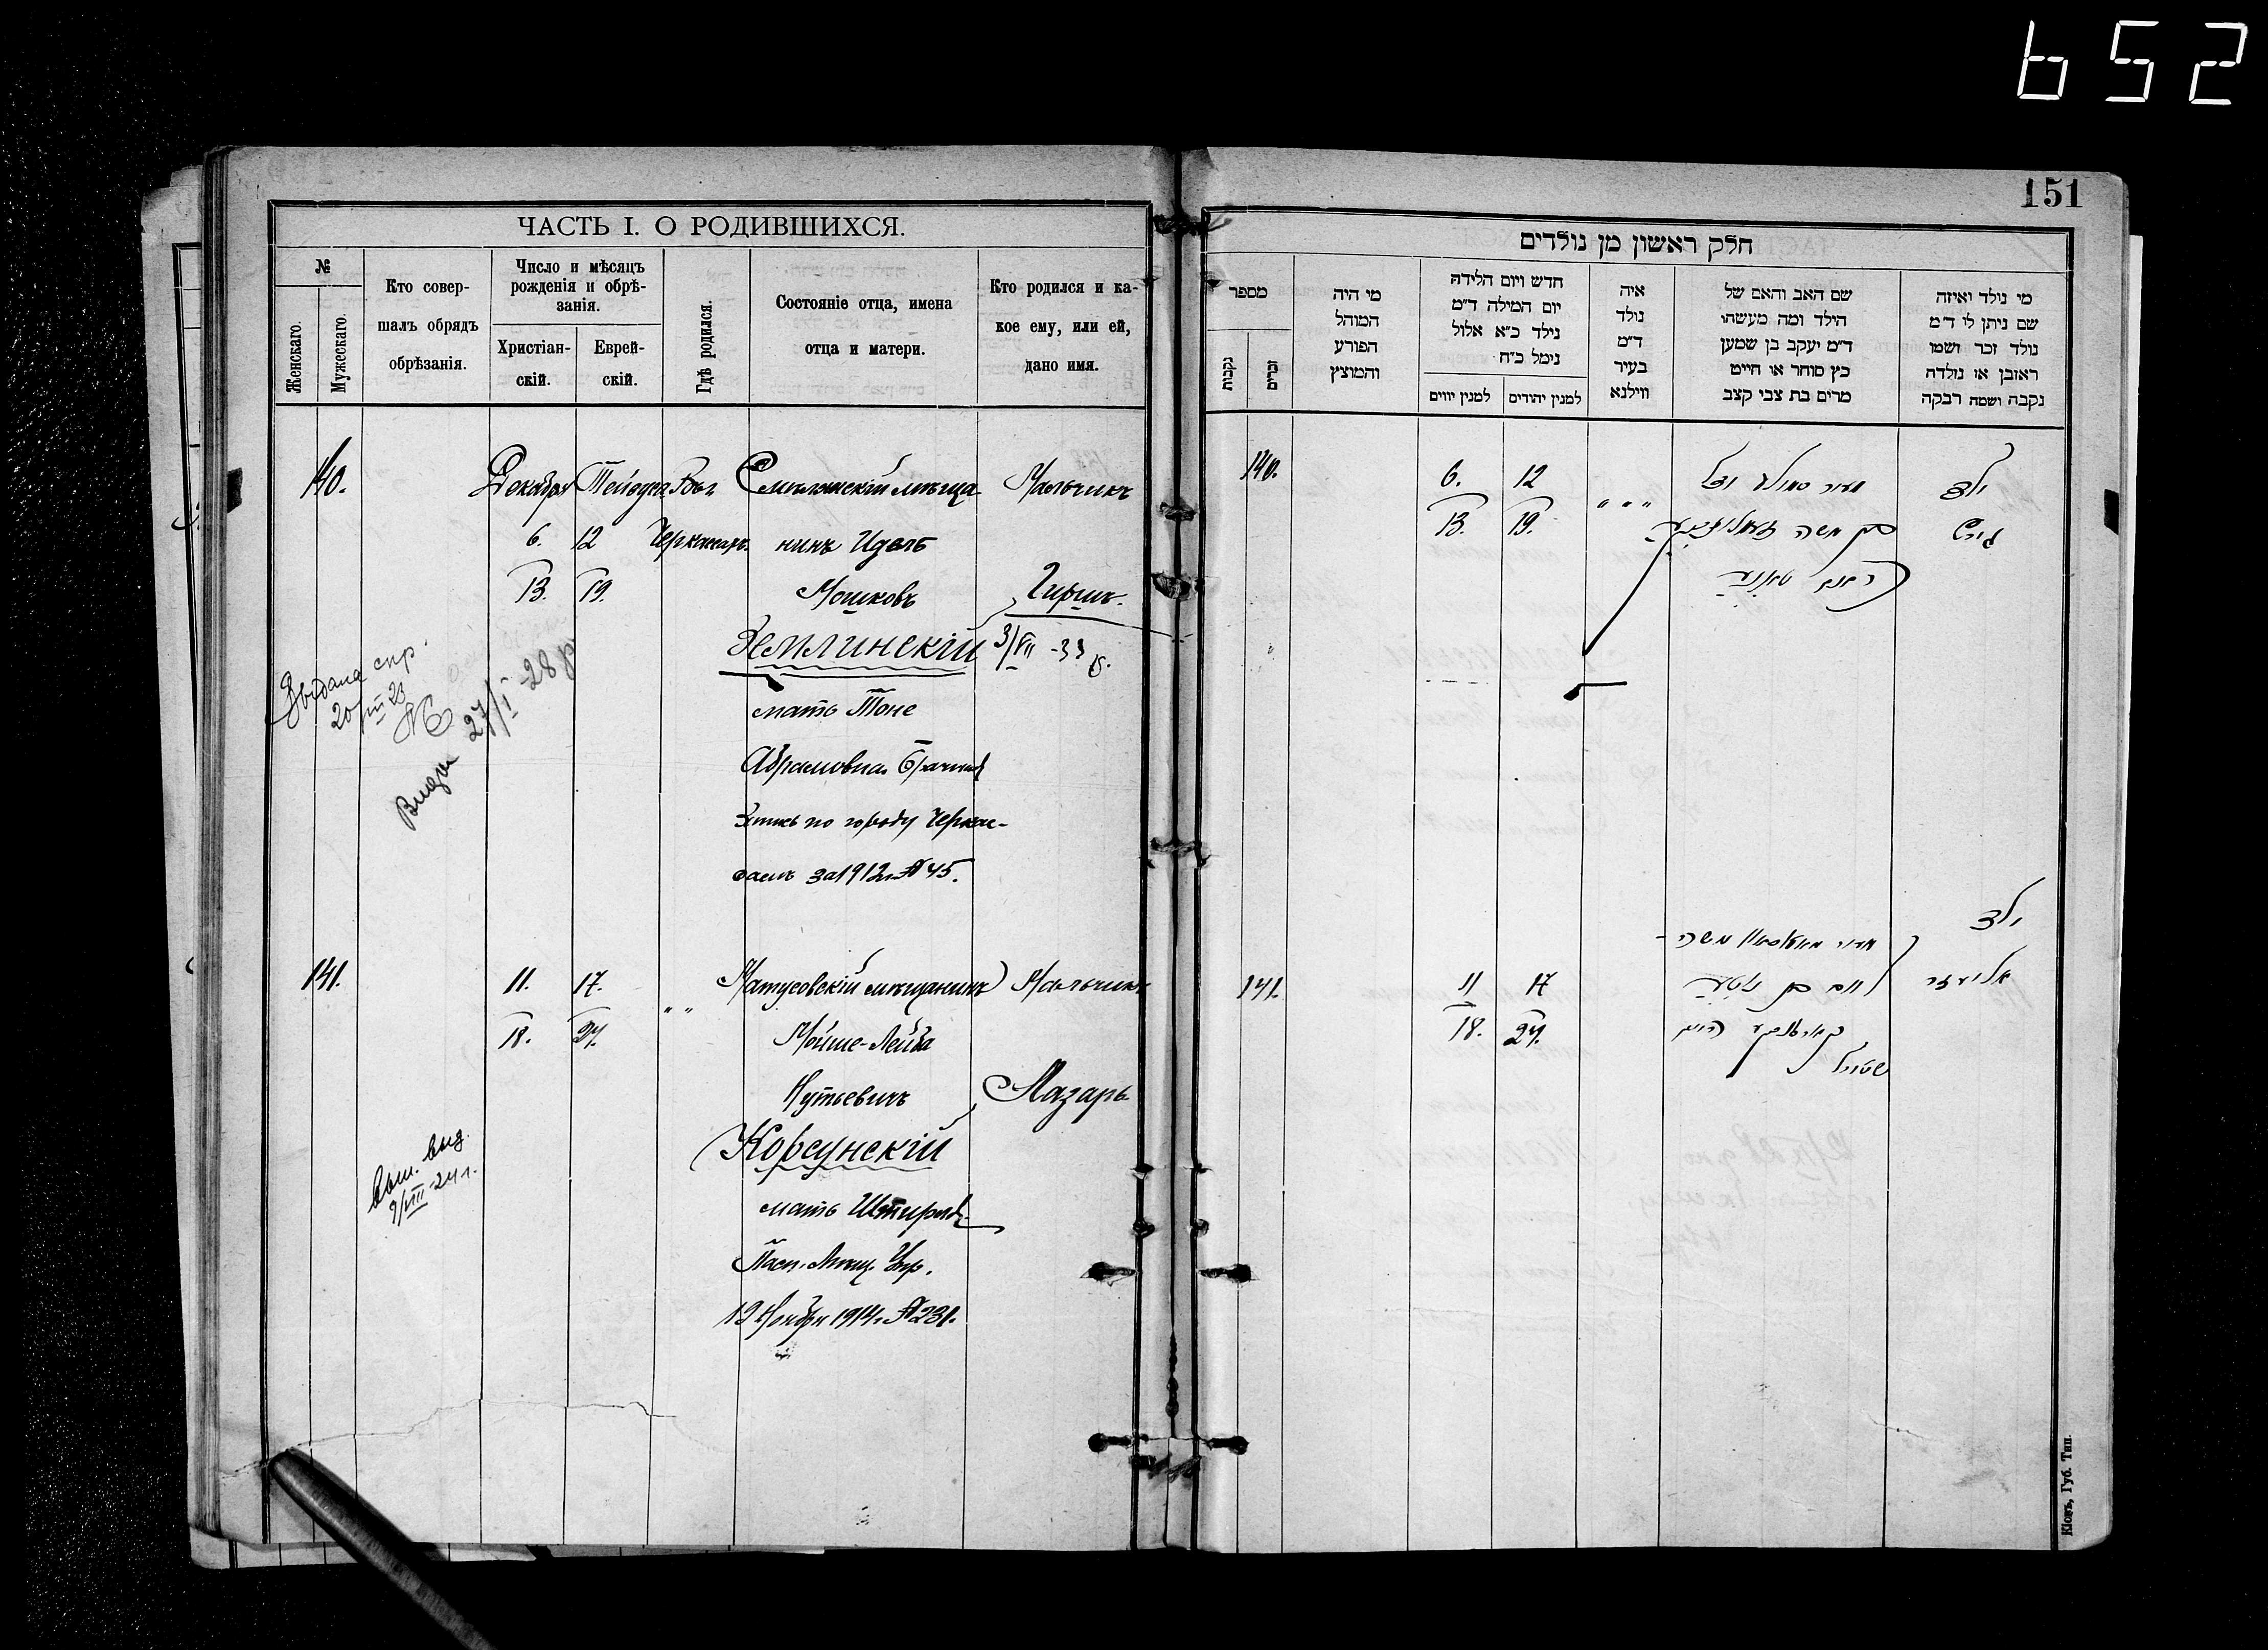 652
151
ЧАСТЬ I. О РОДИВШИХСЯ.
№
Женскаго.
Мужескаго.
Кто совер-
шалъ обрядъ
обрѣзанія.
Число и мѣсяцъ
рожденія и обрѣ-
занія.
Христіан-
скій.
Еврей-
скій.
Гдѣ родился.
Состояніе отца, имена
отца и матери.
Кто родился и ка-
кое ему, или ей,
дано имя.
140.
Декабря
6.
13.
12
19.
Черкассах.
Смѣлянскій мѣща-
нинъ Идель
Мошковъ
Землинскій
мать Тоне
Абрамовна
по городу Черкас-
самъ за 1912 г. № 45.
Мальчикъ
Гиршъ.
3/VII -33
Выдана спр.
20/III 23
27/I -28 р
141.
11.
18.
17.
24.
" "
Матусовскій мѣщанинъ
Мойше-Лейба
Нутьевичъ
Корсунскій
мать
Пасп. Мѣщ. Упр.
12 Ноября 1914 г. № 231.
Мальчикъ
Лазарь
выд.
9/VIII-24 г.
חלק ראשון מן נולדים
מספר
נקבות
זכרים
מי היה
המוהל
הפורע
והמוצץ
חדש ויום הלידה
יום המילה ד"מ
נילד כ"א אלול
נימל כ"ח
למנין יווים
למנין יהודים
איה
נולד
ד"מ
בעיר
ווילנא
שם האב והאם של
הילד ומה מעשהו
ד"מ יעקב בן שמען
כץ סוחר או חייט
מרים בת צבי קצב
מי נולד ואיזה
שם ניתן לו ד"מ
נולד זכר ושמו
ראובן או נולדה
נקבה ושמה רבקה
140.
6.
13.
12
19.
" " "
בן משה
ילד
הירש
141.
11
18.
17
24.
משה
ילד
אליעזר
Кіевъ, Губ. Тип.